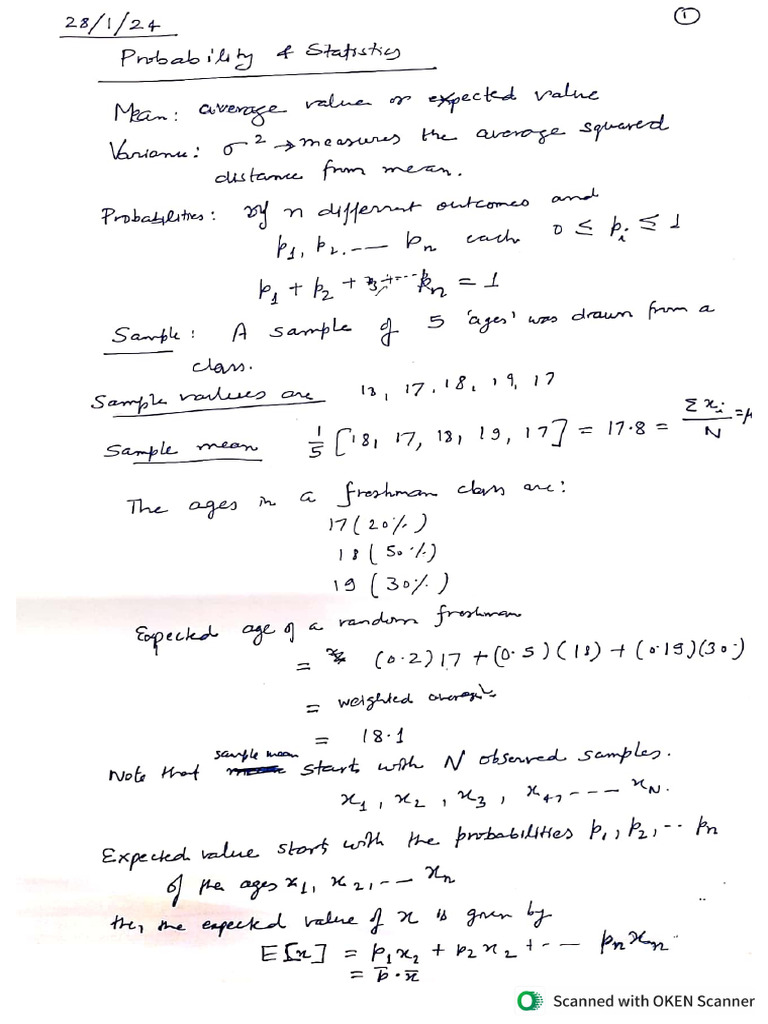 28/1/24
1
Probability & Statistics
Mean: average value or expected value
Variance: σ² → measures the average squared
distance from mean.
Probabilities: If n different outcomes and
p₁, p₂, ---- pₙ each 0 ≤ pᵢ ≤ 1
p₁ + p₂ + ... pₙ = 1
Sample: A sample of 5 'ages' was drawn from a
class.
Sample values are 18, 17, 18, 19, 17
Sample mean 1/5 [18, 17, 18, 19, 17] = 17.8 = Σxᵢ/N = μ
The ages in a freshman class are:
17 (20%)
18 (50%)
19 (30%)
Expected age of a random freshman
= (0.2)17 + (0.5)(18) + (0.19)(30)
= weighted average
= 18.1
Note that sample mean starts with N observed samples.
x₁, x₂, x₃, x₄, ---- xN.
Expected value starts with the probabilities p₁, p₂, -- pₙ
of the ages x₁, x₂, -- xₙ
the, the expected value of x is given by
E[x] = p₁x₂ + p₂x₂ + -- pₙxₙ
= p̄ · x̄
Scanned with OKEN Scanner